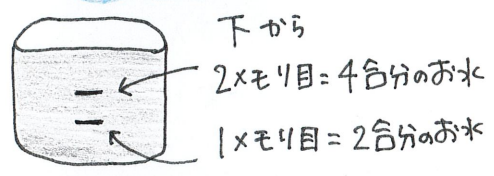 下から
2メモリ目=4合分のお水
1メモリ目=2合分のお水